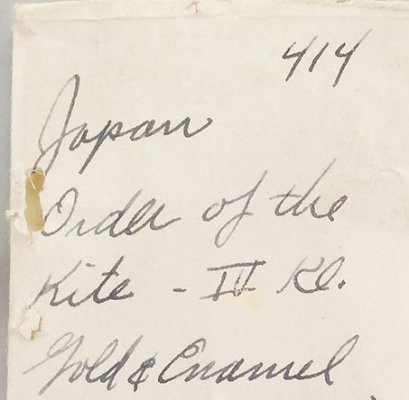 414
Japan
Order of the
Kite - IV Kl.
Gold & Enamel